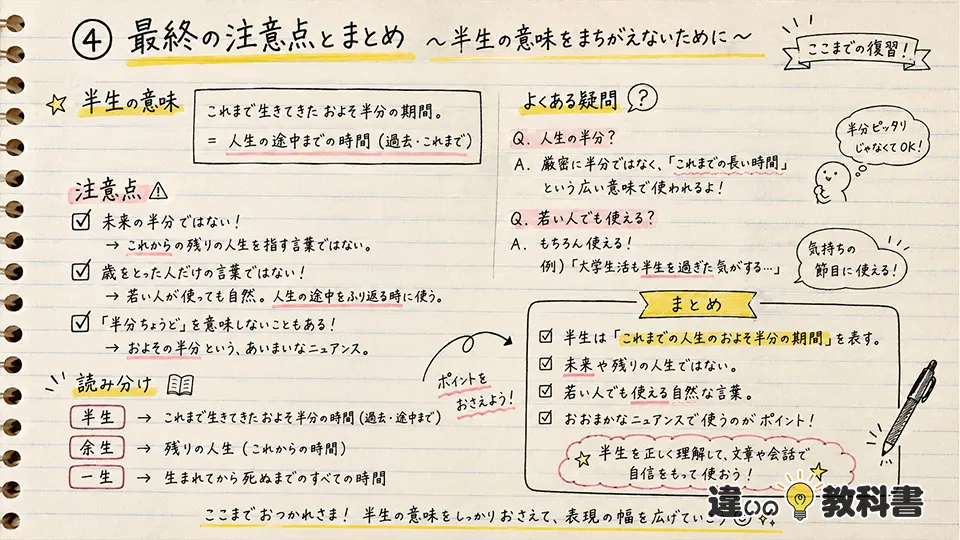 ④ 最終の注意点とまとめ ～半生の意味をまちがえないために～
ここまでの復習！
半生の意味
これまで生きてきた およそ半分の期間。
＝ 人生の途中までの時間（過去・これまで）
注意点
未来の半分ではない！
→ これからの残りの人生を指す言葉ではない。
歳をとった人だけの言葉ではない！
→ 若い人が使っても自然。人生の途中をふり返る時に使う。
「半分ちょうど」を意味しないこともある！
→ およその半分という、あいまいなニュアンス。
読み分け
半生 → これまで生きてきたおよそ半分の時間（過去・途中まで）
余生 → 残りの人生（これからの時間）
一生 → 生まれてから死ぬまでのすべての時間
よくある疑問 ?
Q. 人生の半分？
A. 厳密に半分ではなく、「これまでの長い時間」
という広い意味で使われるよ！
Q. 若い人でも使える？
A. もちろん使える！
例）「大学生活も半生を過ぎた気がする…」
半分ピッタリ
じゃなくてOK！
気持ちの
節目に使える！
ポイントを
おさえよう！
まとめ
半生は「これまでの人生のおよそ半分の期間」を表す。
未来や残りの人生ではない。
若い人でも使える自然な言葉。
おおまかなニュアンスで使うのがポイント！
半生を正しく理解して、文章や会話で
自信をもって使おう！
ここまでおつかれさま！ 半生の意味をしっかりおさえて、表現の幅を広げていこ
違いの教科書